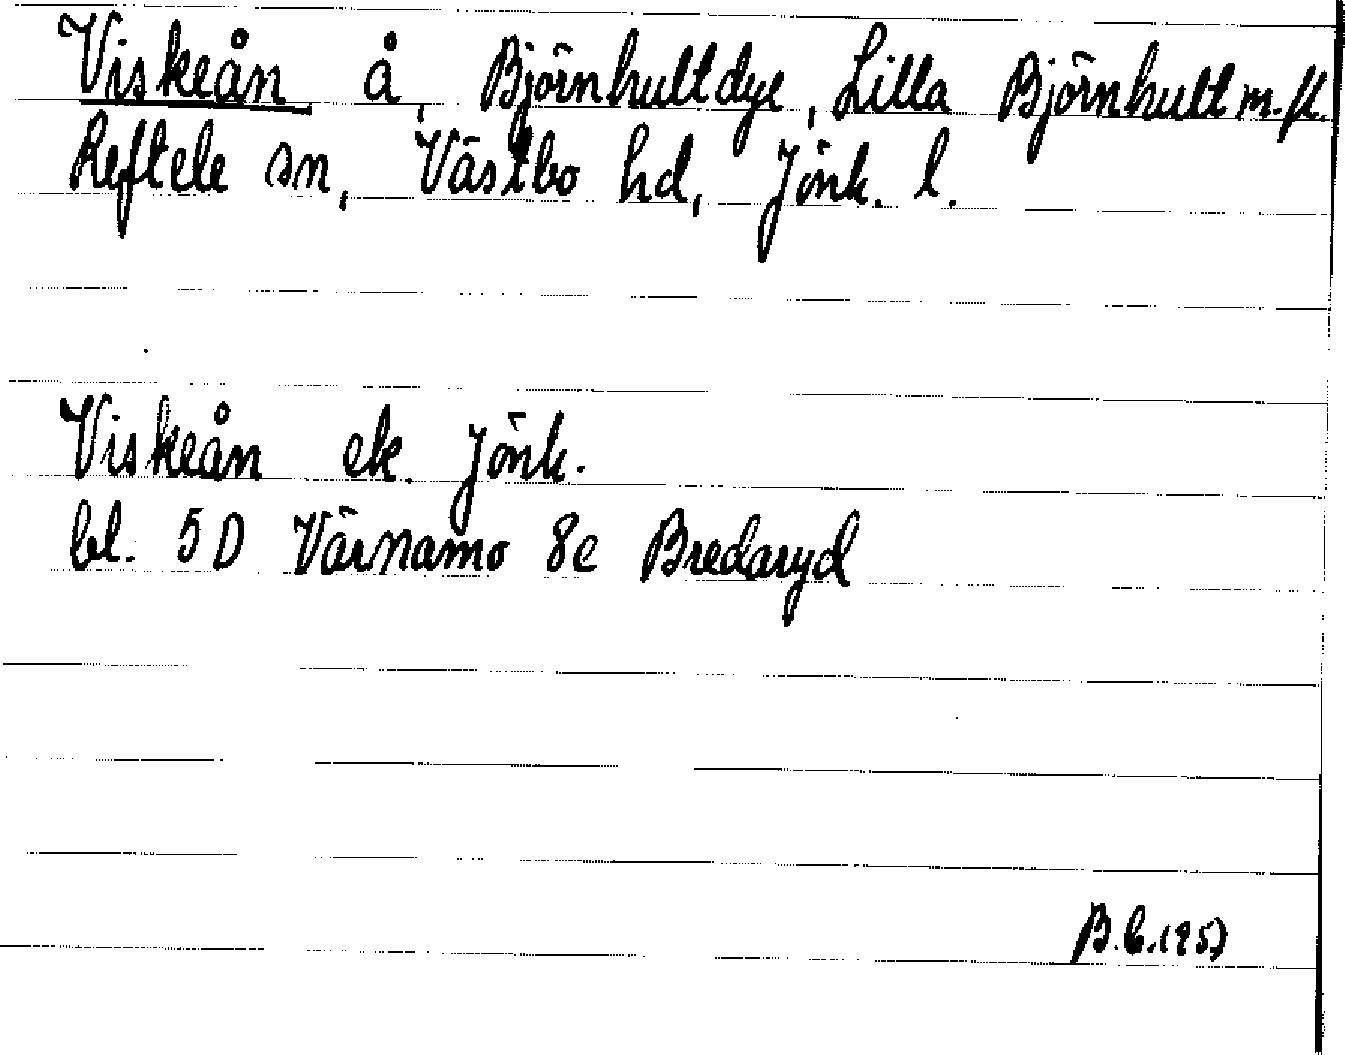 Viskeån å, Björnhultdye, Lilla Björnhult m.fl.
Reftele sn, Västbo hd, Jönk. l.
Viskeån ek. Jönk.
bl. 5D Värnamo 8e Bredaryd